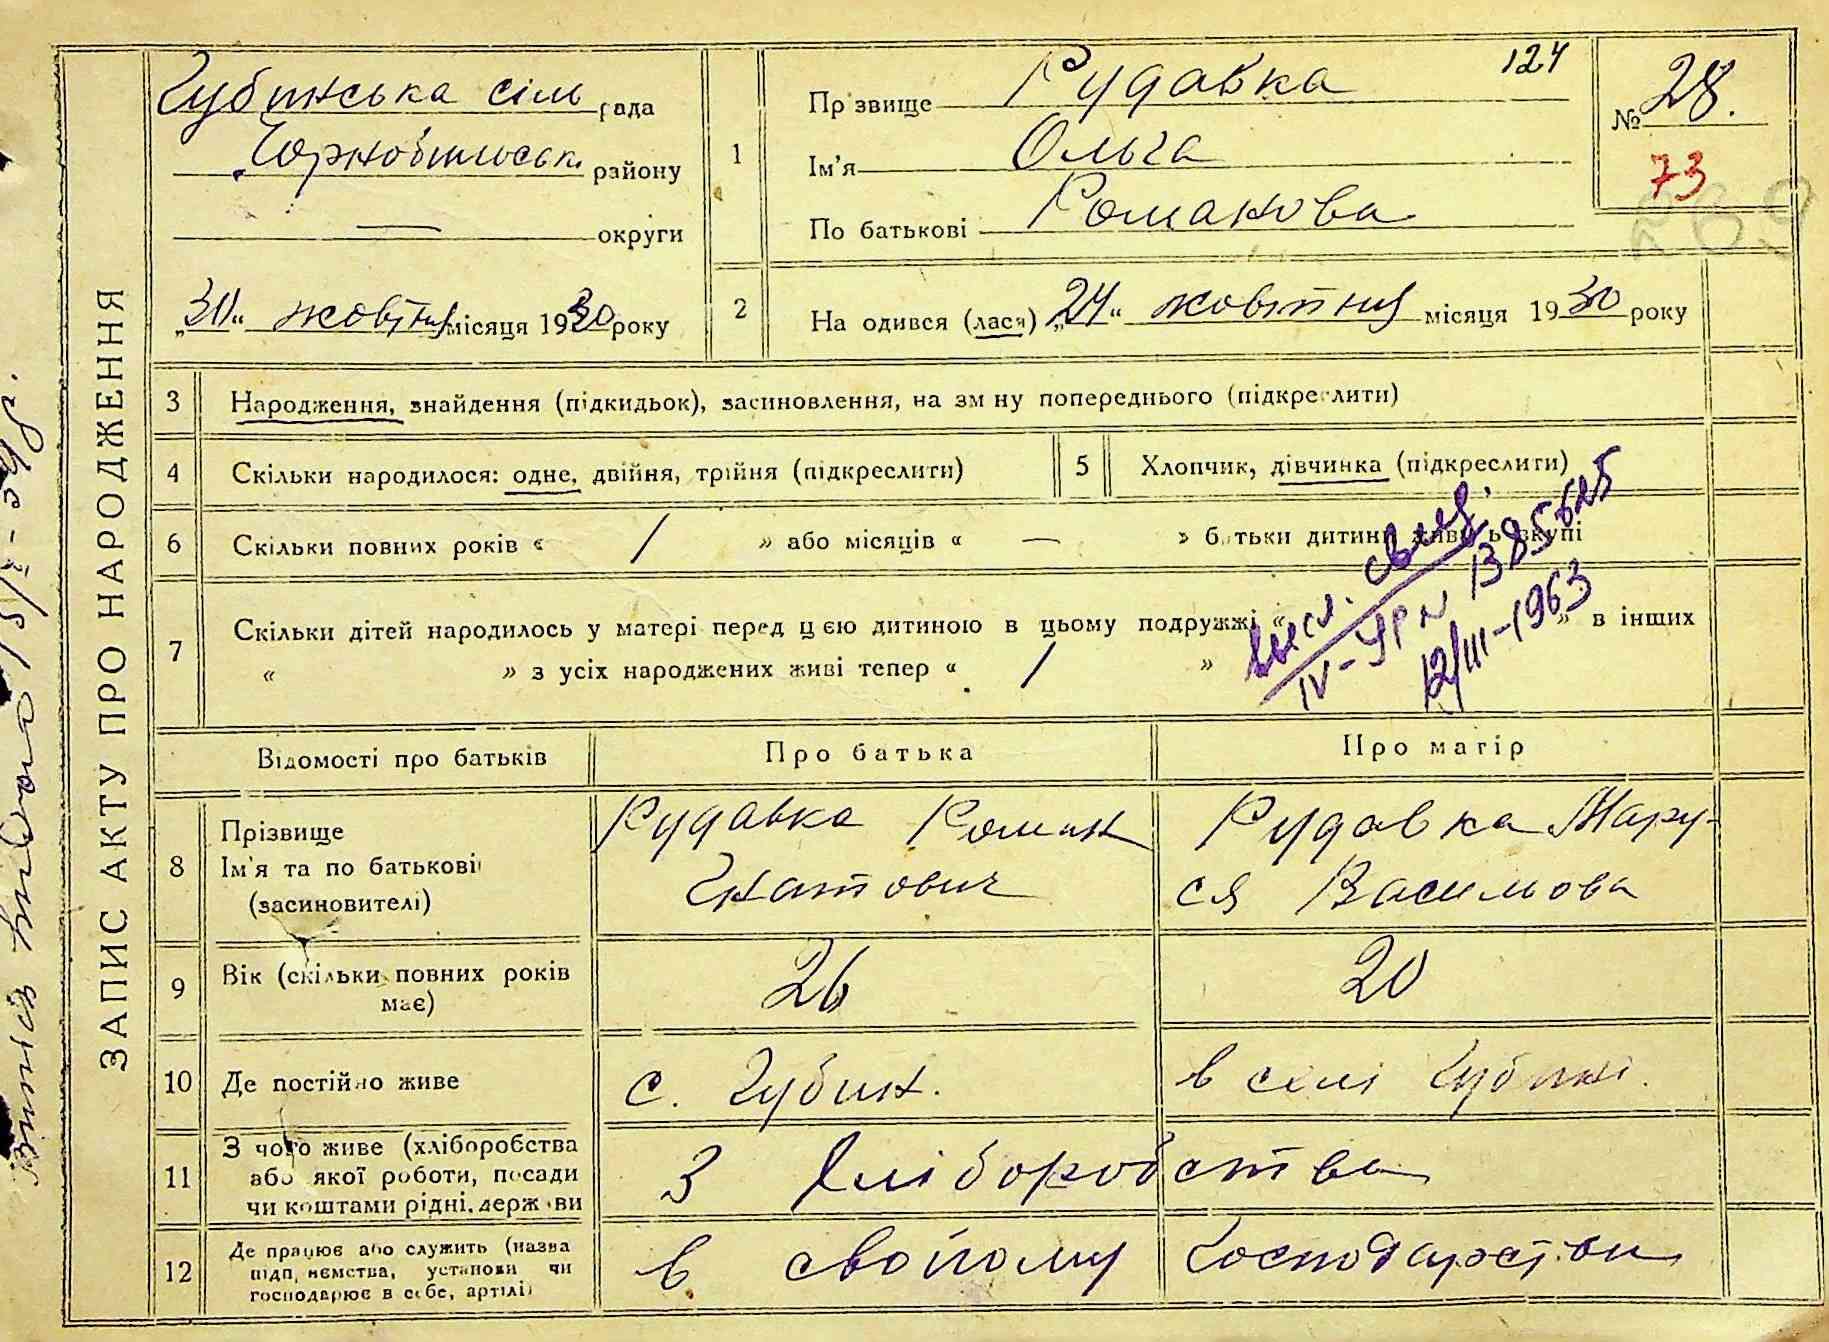 ЗАПИС АКТУ ПРО НАРОДЖЕННЯ
Губинська сіль рада
Чорнобильськ. району
— округи
„30“ жовтня місяця 1930 року
1
Прізвище Рудавка
124
Ім'я Ольга
По батькові Романова
№ 28.
73
2
На одився (лася) „24“ жовтня місяця 1930 року
3 Народження, знайдення (підкидьок), засиновлення, на зм ну попереднього (підкреслити)
4 Скільки народилося: одне, двійня, трійня (підкреслити)
5 Хлопчик, дівчинка (підкреслити)
6 Скільки повних років « / » або місяців « — » батьки дитини живуть вкупі
7 Скільки дітей народилось у матері перед цією дитиною в цьому подружжі « » в інших
« » з усіх народжених живі тепер « / »
IV-УР N 1385625
12/III-1963
Відомості про батьків
Про батька
Про матір
8 Прізвище
Ім'я та по батькові
(засиновителі)
Рудавка Роман
Гнатович
Рудавка Мару-
ся Васильова
9 Вік (скільки повних років
має)
26
20
10 Де постійно живе
с. Губин.
в селі Губині.
11 З чого живе (хліборобства
або якої роботи, посади
чи коштами рідні, держави
З Хліборобства
12 Де працює або служить (назва
підп, ємства, установи чи
господарює в себе, артілі)
в свойому Господарстви